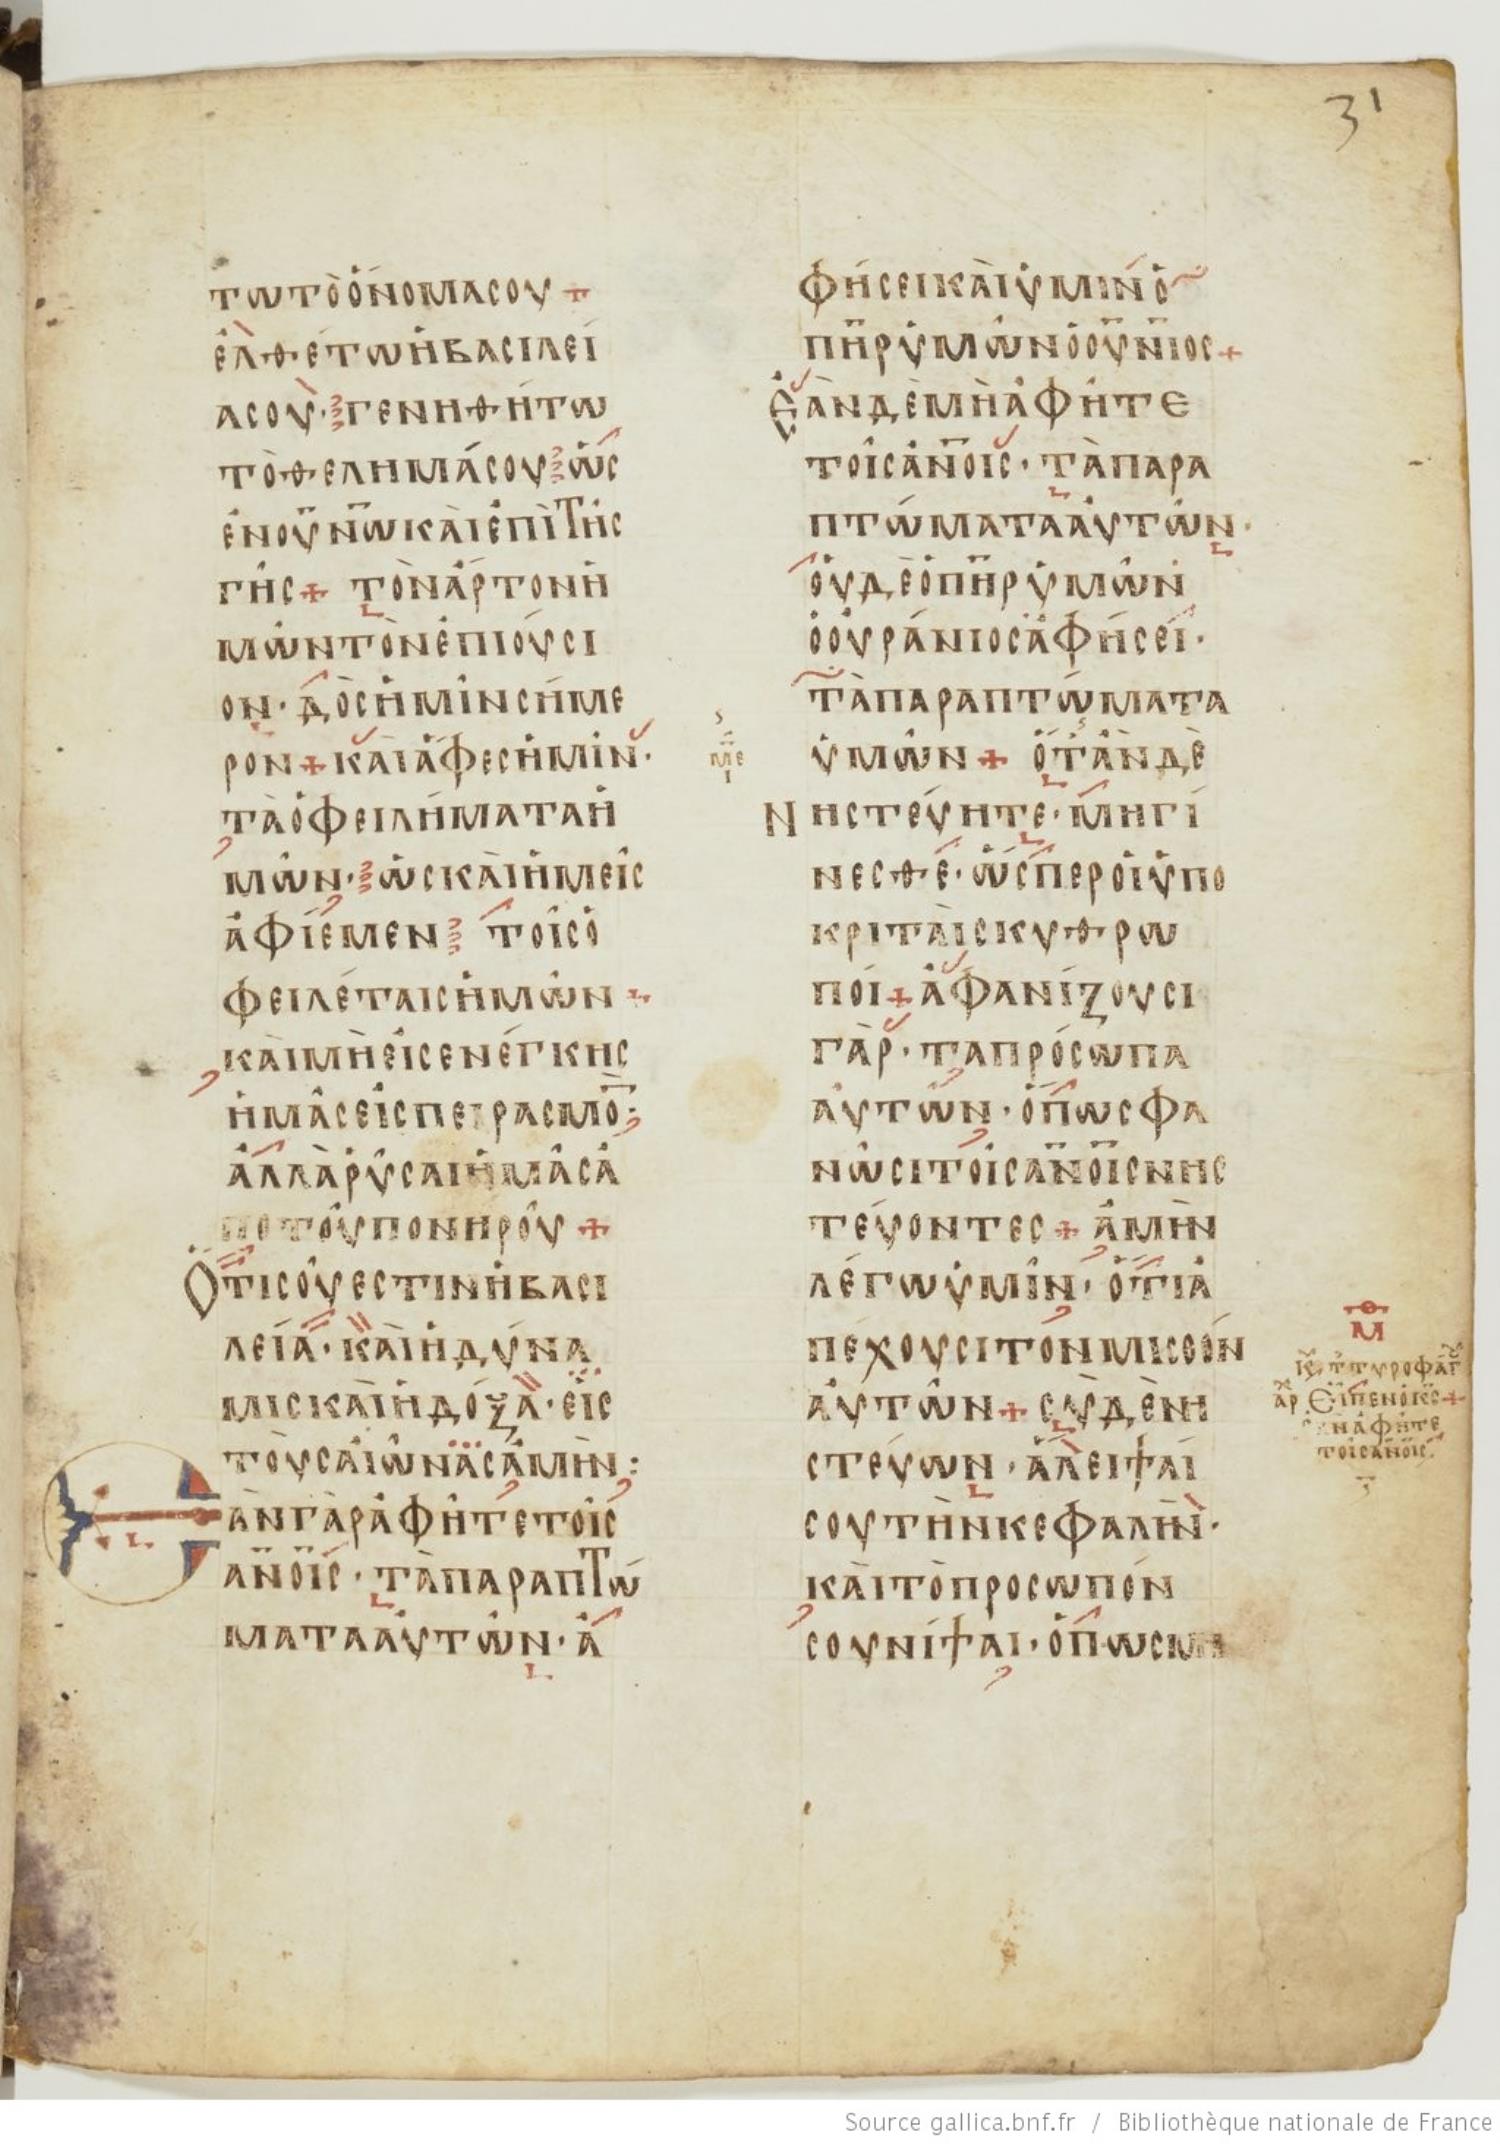 31
τωτὸὄνομασου +
ἐλθέτωἡβασιλεί
ασου· γενηθήτω
τὸθελημάσου ὡς
ἐνουν̅ωκαὶἐπὶτῆς
γῆς + τὸνἄρτονἡ
μῶντὸνἐπιούσι
ον· δὸσἡμῖνσήμε
ρον + καὶἄφεσἡμῖν·
τὰὀφειλήματαἡ
μῶν· ὡσκαὶἡμεῖς
ἀφίεμεν τοῖσὀ
φειλέταισἡμῶν +
καὶμὴεἰσενέγκης
ἡμᾶσεἰσπειρασμο̅:
ἀλλὰῥῦσαιἡμᾶσἀ
ποτοῦπονηροῦ +
Ὅτισοῦεστινἡβασι
λεία· καὶἡδύνα
μισκαὶἡδόξα· εἰς
τοὺσαἰῶνασἀμὴν:
Ἐὰνγὰρἀφῆτετοῖς
αν̅οις· τὰπαραπτώ
ματααὐτῶν· ἀ
φήσεικαὶὑμῖνὁ
πη̅ρὑμῶνὁουν̅ιος +
Ἐὰνδὲμὴἀφῆτε
τοῖσἀν̅οις· τὰπαρα
πτώματααὐτῶν·
ὀυδὲὁπη̅ρὑμῶν
ὁοὐράνιοσἀφήσει·
τὰπαραπτώματα
ὑμῶν + ὅτἀνδὲ
Νηστεύητε· μηγί
νεσθε· ὥσπεροἱὑπο
κριταὶσκυθρω
ποί + ἀφανίζουσι
γὰρ· ταπρόσωπα
αὐτῶν· ὅπωσφα
νῶσιτοῖσαν̅οιςνης
τεύοντες + ἀμὴν
λέγωὑμῖν· ὅτιἀ
πέχουσιτὸνμισθὸν
αὐτῶν + σὺδὲνη
στεύων· ἄλειψαί
σουτὴνκεφαλὴν·
καὶτὸπροσωπόν
σουνίψαι· ὅπωσμη
με
Κυ τ τυροφάγ
ἀρ Εἶπενὁκς +
ἐὰνἀφῆτε
τοῖσἀν̅οις